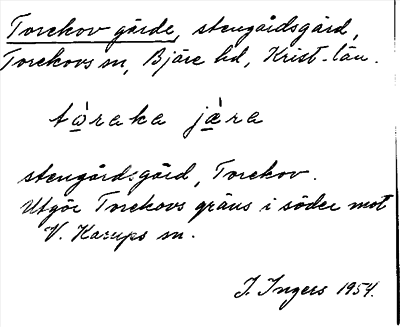 Torekov gärde, stengärdsgård,
Torekovs sn, Bjäre hd, Krist. län.
tὼraka jæ̀ra
stengärdsgård, Torekov.
Utgör Torekovs gräns i söder mot
V. Karups sn.
I. Ingers 1954.